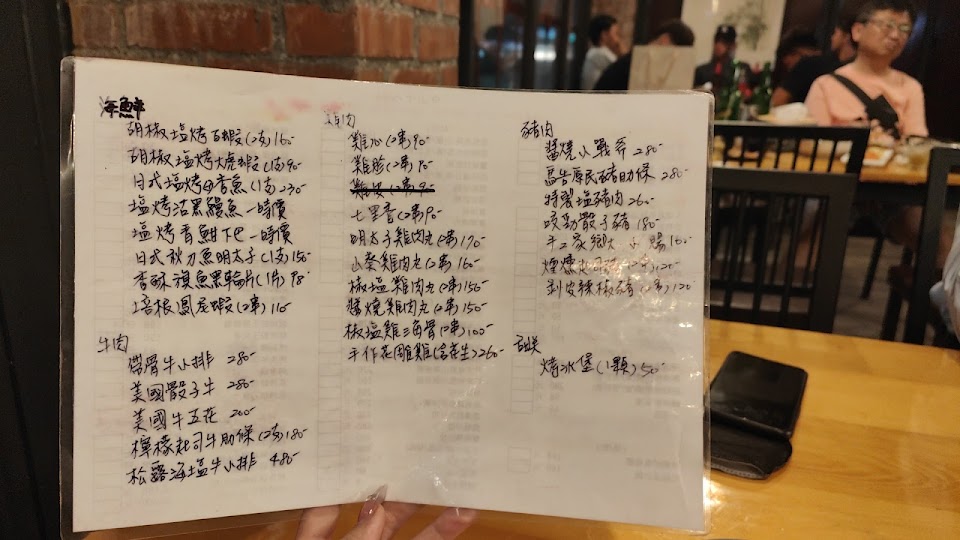 海鮮
胡椒塩烤白蝦(2支)160
胡椒塩烤大虎蝦(1支)90
日式塩烤母香魚(1支)230
塩烤活黑鰻魚一時價
塩烤青魽下巴一時價
日式秋刀魚明太子(1支)150
香酥旗魚黑輪片(1片)
培根鳳尾蝦(2串)110
牛肉
帶骨牛小排 280-
美國骰子牛 280-
美國牛五花 200-
檸檬起司牛肋條(2支)180-
松露海塩牛小排 480-
雞肉
雞心(2串)90-
雞胗(2串)90-
雞皮(2串)90-
七里香(2串)90-
明太子雞肉丸(2串)170-
山葵雞肉丸(2串)160-
椒塩雞肉丸(2串)150-
醬燒雞肉丸(2串)150-
椒塩雞三角骨(2串)100-
手作花雕雞(含花生)260-
豬肉
醬燒小戰斧 280-
馬告原民豬肋條 280-
特製塩豬肉 260-
咬勁骰子豬 180-
手工家鄉大 腸 100-
煙燻起司 (2串)120-
剝皮辣椒豬(2串)120
甜
烤冰堡(1顆)50-